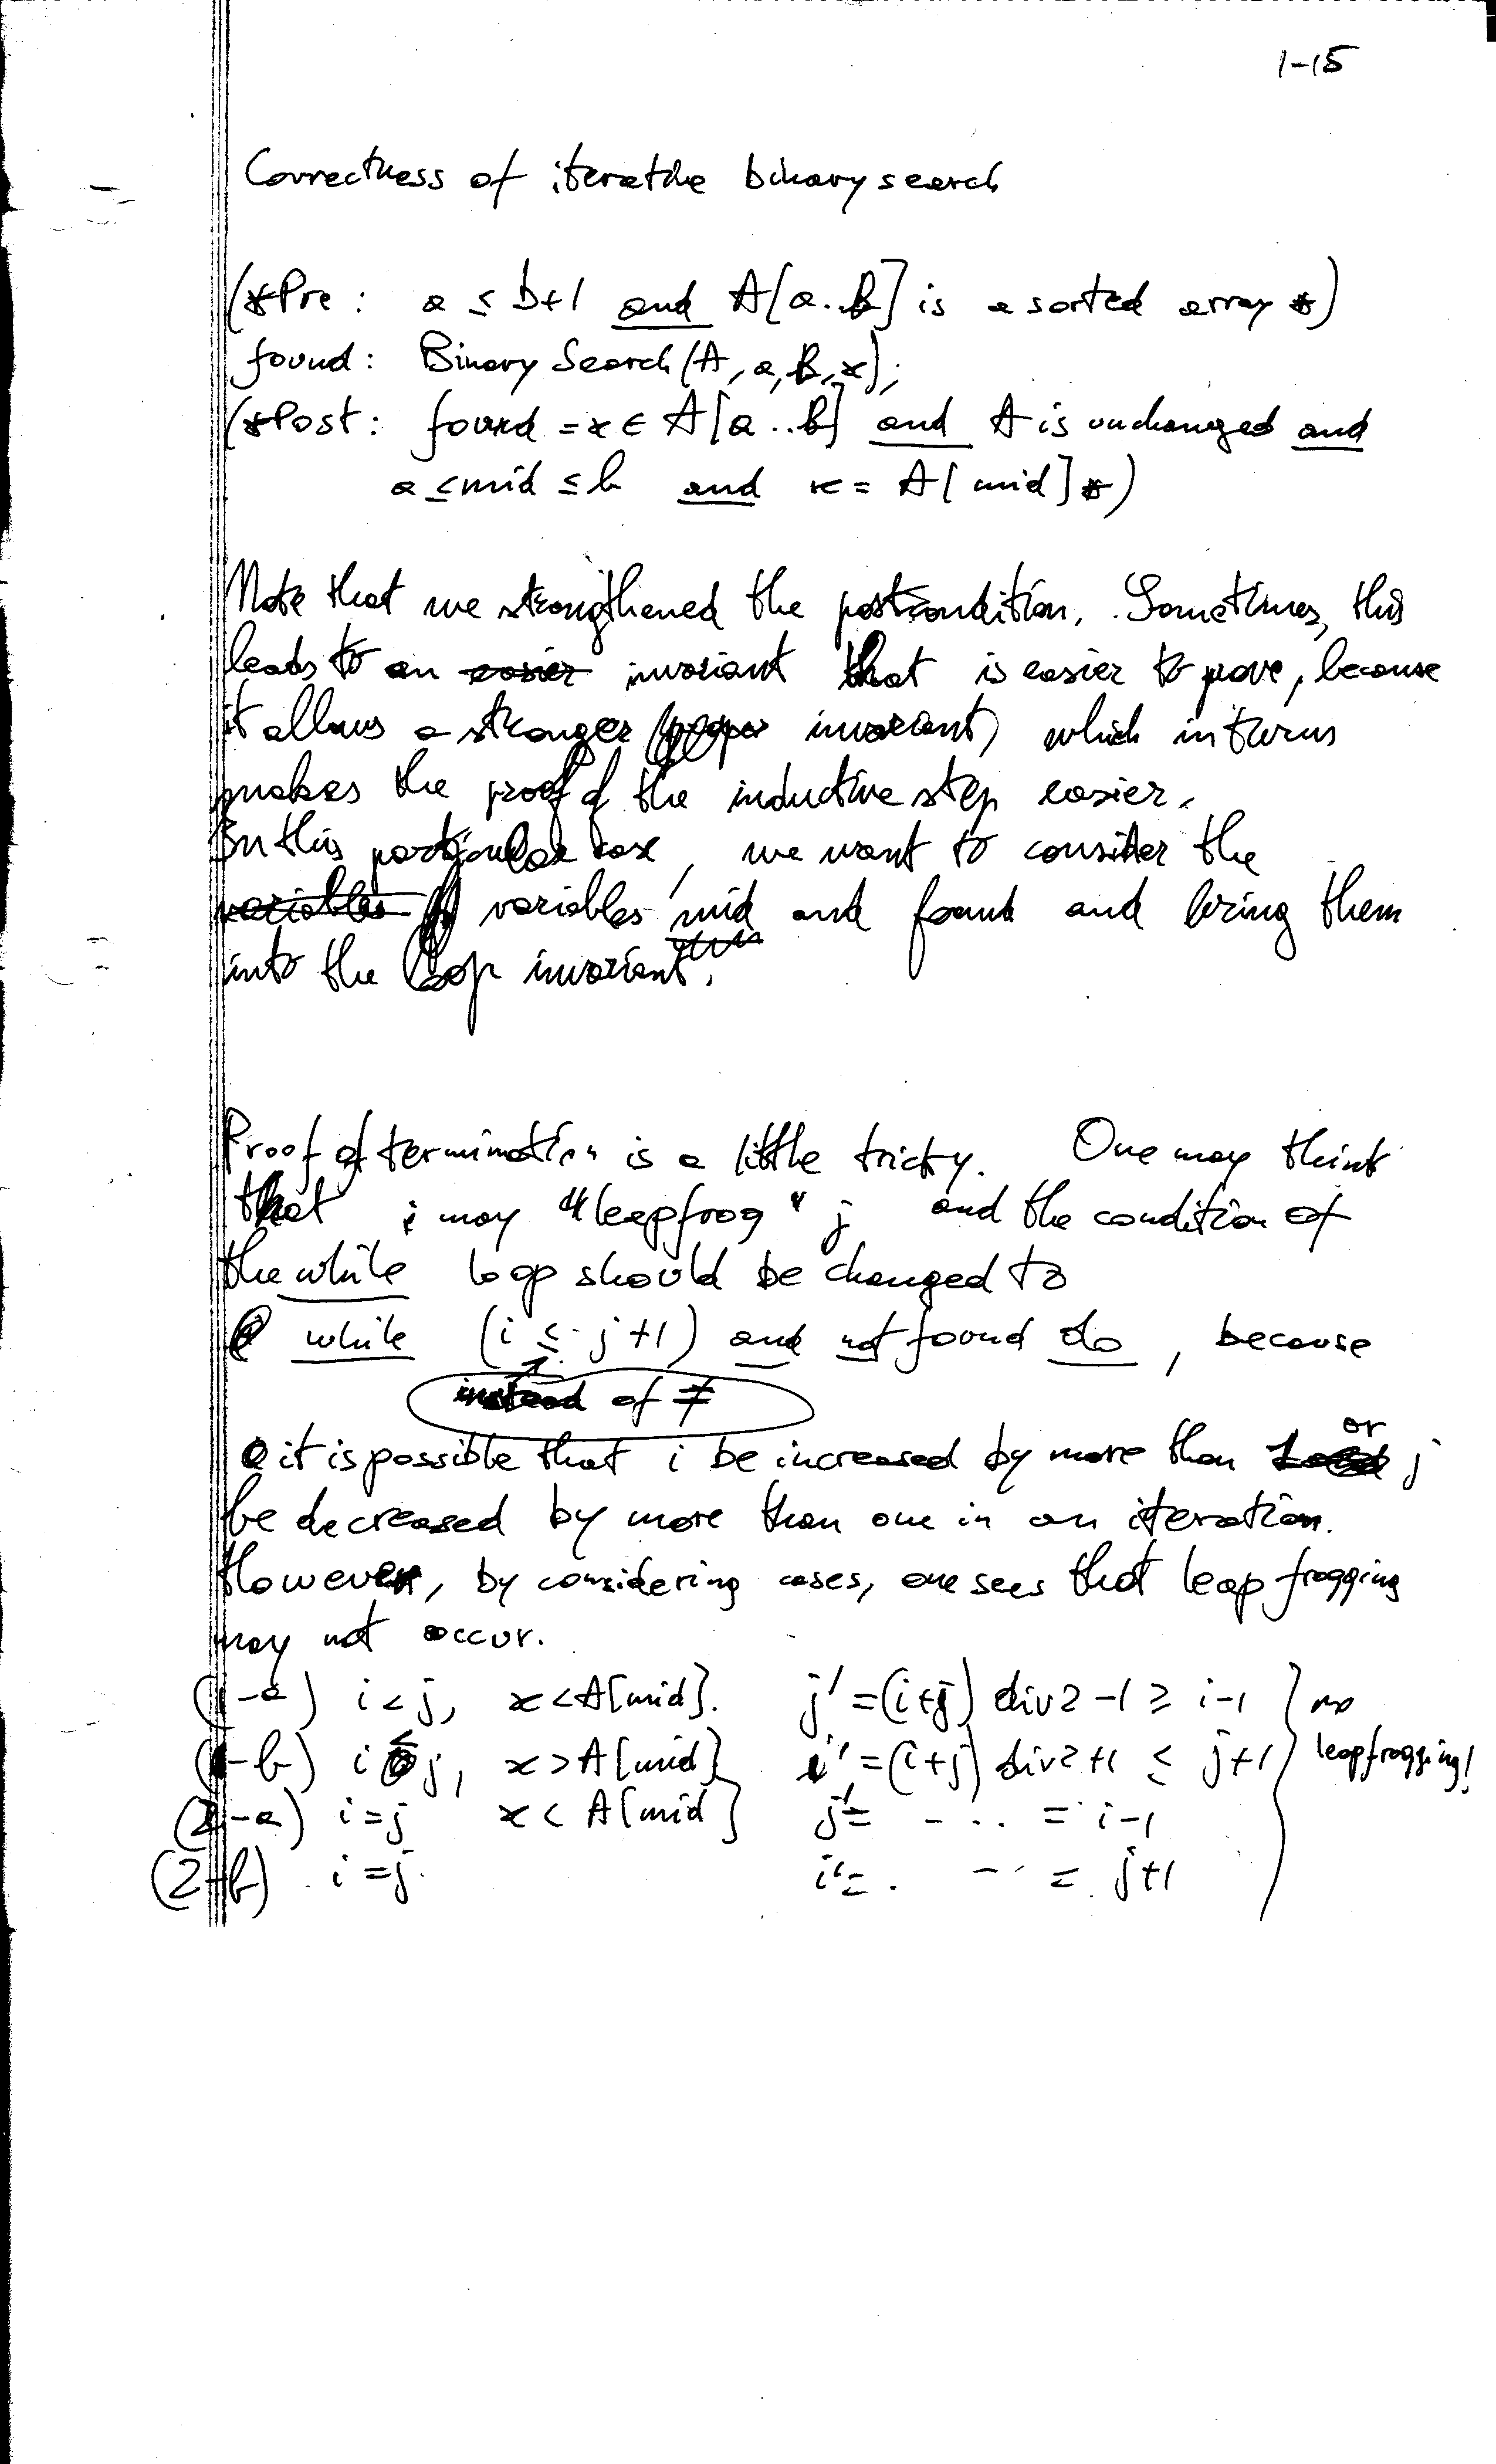 1-15
Correctness of iterative binary search
(*Pre: a ≤ b+1 and A[a..b] is a sorted array *)
found: Binary Search(A, a, b, x);
(*Post: found = x ∈ A[a..b] and A is unchanged and
a ≤ mid ≤ b and x = A[mid] *)
Note that we strengthened the postcondition. Sometimes, this
leads to an easier invariant that is easier to prove, because
it allows a stronger invariant, which in turns
makes the proof of the inductive step easier.
In this particular case, we want to consider the
variables variables mid and found and bring them
into the loop invariant.
Proof of termination is a little tricky. One may think
that i may "leapfrog" j and the condition of
the while loop should be changed to
while (i ≤ j+1) and not found do, because
instead of ≠
it is possible that i be increased by more than or j
be decreased by more than one in an iteration.
However, by considering cases, one sees that leap frogging
may not occur.
(1-a) i < j, x < A[mid]. j' = (i+j) div 2 -1 ≥ i-1 } no
(1-b) i ≤ j, x > A[mid] i' = (i+j) div 2 +1 ≤ j+1 leapfrogging!
(2-a) i = j x < A[mid] j' = - .. = i-1
(2-b) i = j. i' = . -- = j+1